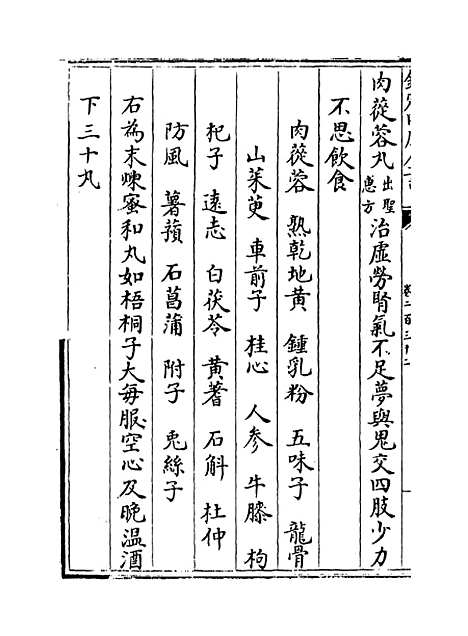 肉蓯蓉丸出聖惠方治虛勞腎氣不足夢與鬼交四肢少力
不思飲食
肉蓯蓉　熟乾地黃　鍾乳粉　五味子　龍骨
山茱萸　車前子　桂心　人參　牛膝　枸
杞子　遠志　白茯苓　黃蓍　石斛　杜仲
防風　薯蕷　石菖蒲　附子　兎絲子
右為末煉蜜和丸如梧桐子大每服空心及晩温酒
下三十丸
卷二百三十二